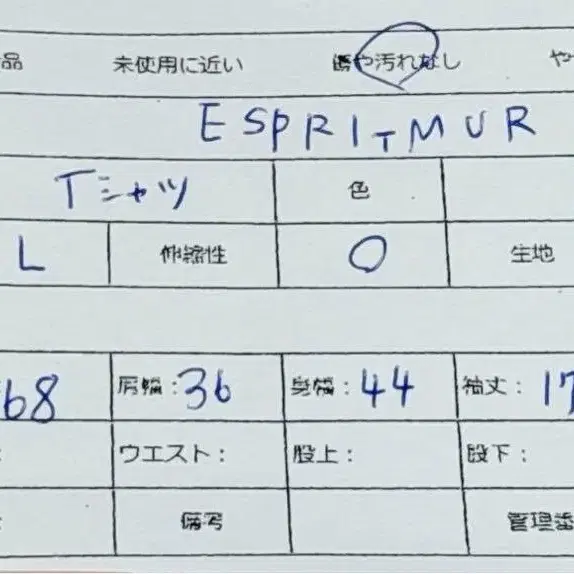 品 未使用に近い 傷や汚れなし や
ESPRITMUR
Tシャツ 色
L 伸縮性 ○ 生地
68 肩幅:36 身幅:44 袖丈:17
: ウエスト: 股上: 股下:
備考 管理番